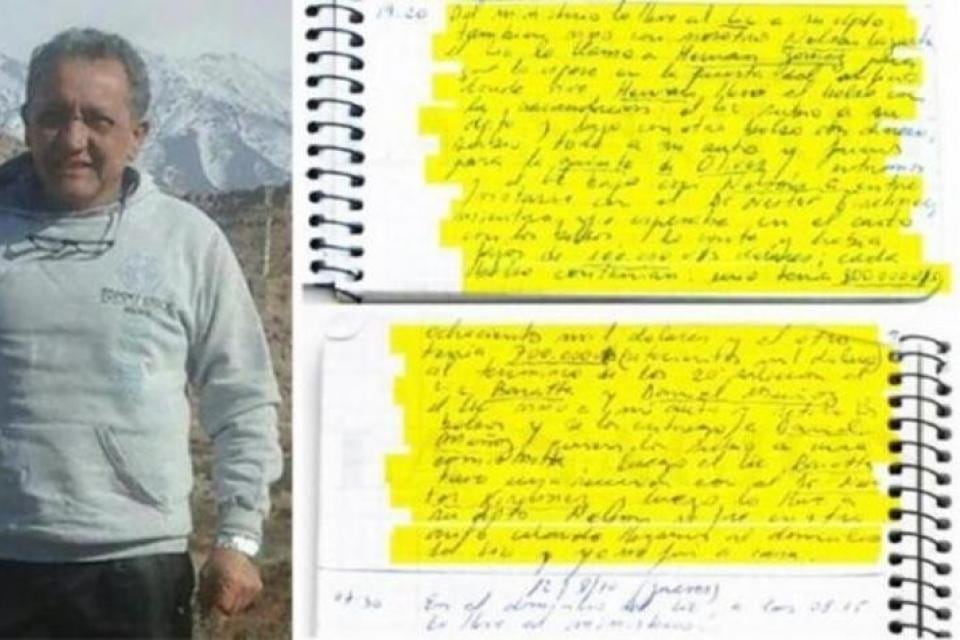 19:20 Del ministerio lo lleve al Lic a su dpto.
tambien vino con nosotros Nelson
el Lic lo llamo a Hernan Gomez para
que lo espere en la puerta del edificio
donde vive Hernan llevo el bolso con
la recaudacion el Lic subio a su
dpto y bajo con otro bolso con dinero,
todo a mi auto y fuimos
para la quinta de Olivos
el Lic bajo con Nelson a entre
vistarse con el Dr Nestor Kirchner,
mientras yo esperaba en el auto
con los bolsos. Lo conte y habia
fajos de 100.000 u$s dolares, cada
bolso contenian. uno tenia 800.000 u$s
ochocientos mil dolares y el otro
tenia 700.000 (setecientos mil dolares)
al termino de los 20 minutos el
Lic Baratta y Daniel Muñoz
el Lic vino a mi auto y retiro los
bolsos y se los entrego a Daniel
Muñoz, y
con Baratta. Luego el Lic Baratta
tuvo una reunion con el Dr Nes
tor Kirchner, y luego lo lleve a
su dpto. Nelson se fue en otro
auto cuando llegamos al domicilio
del Lic y yo me fui a casa.
12/8/10 (jueves)
07:30 En el domicilio del Lic, a las 08:15
lo lleve al ministerio.